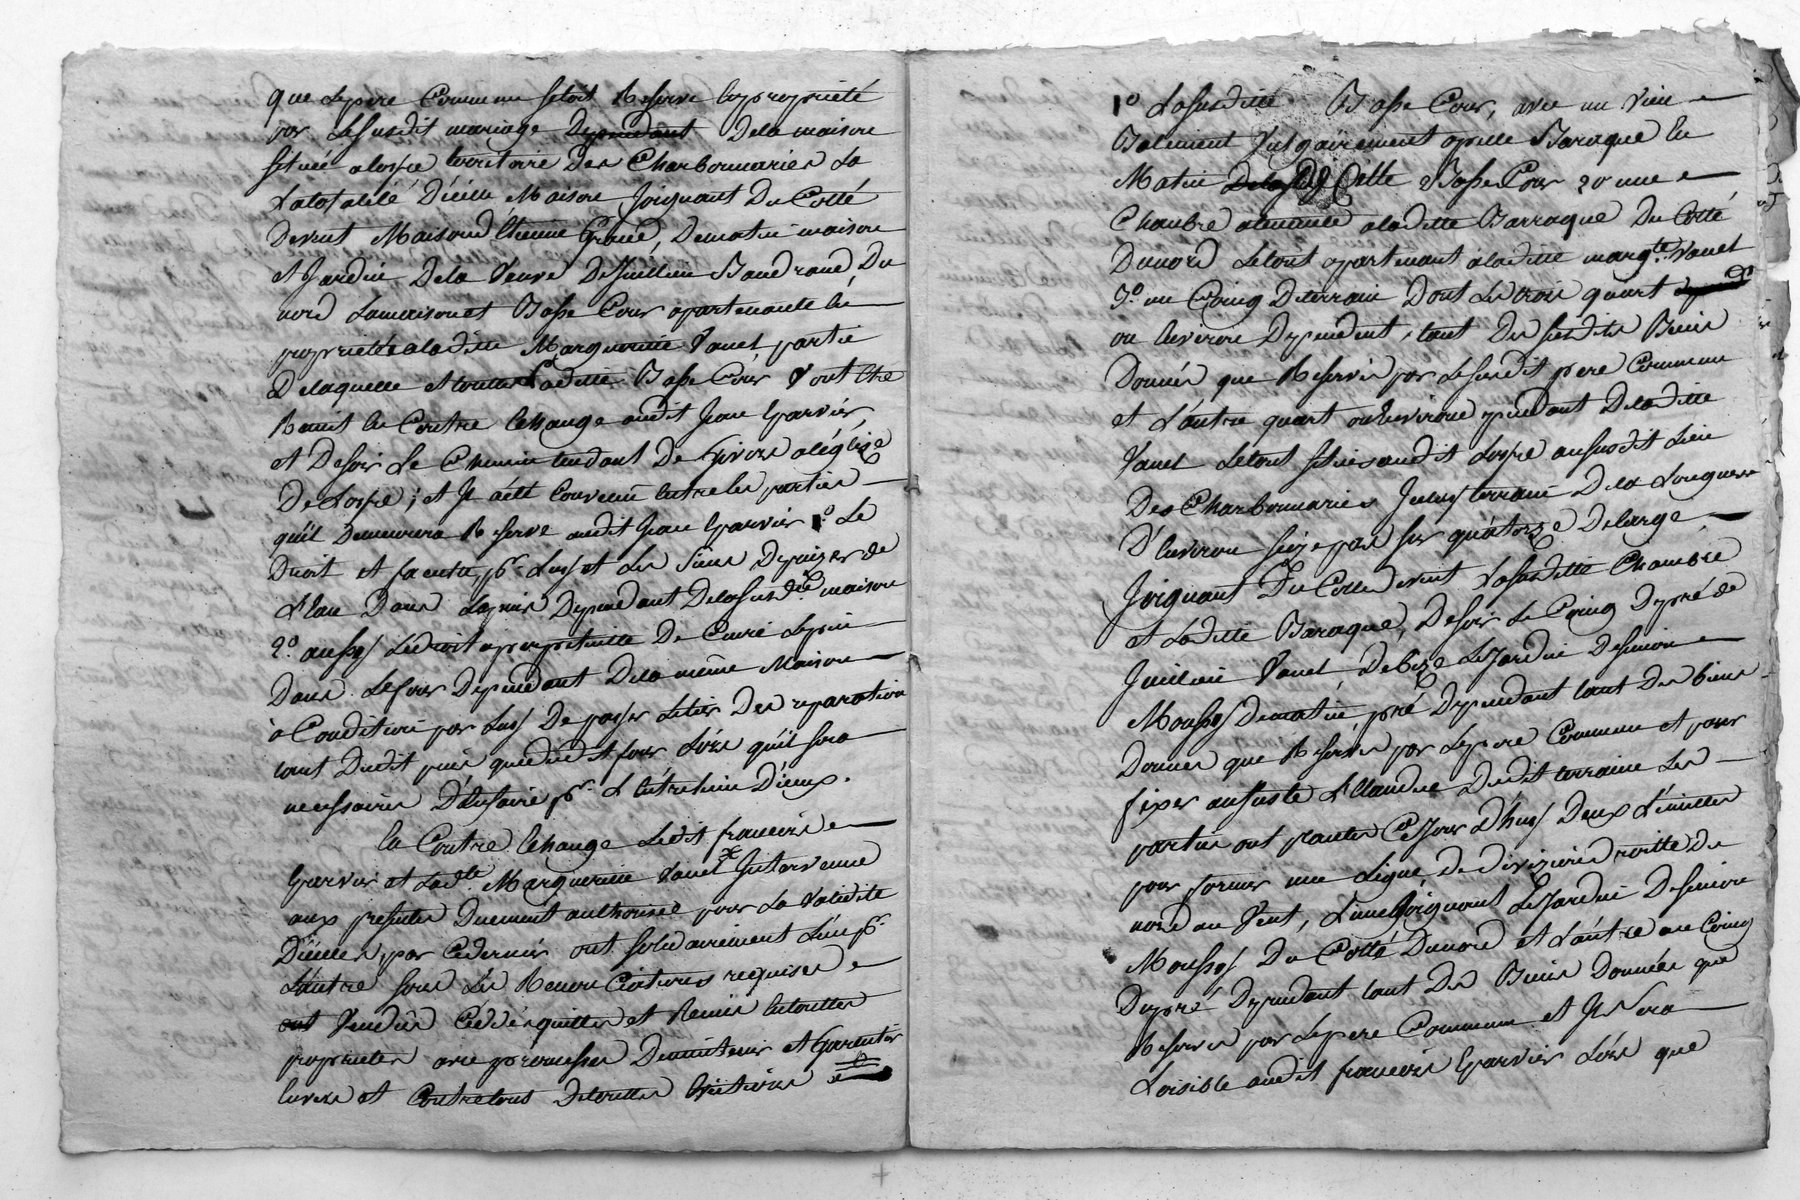 que Lepere Commun setoit Reservé lapropriété
par Lesusdit mariage Dependant Dela maison
située aloire territoire Des Charbonnaries La
Latotalité D'icelle Maison Joignant Du Cotté
Devent Maison d'Etienne Grand, Dematin maison
et Jardin Dela Veuve De Jullien Baudrand, Du
nord Lamaison et Basse Cour apartenante En
propriété aladitte Marguerite Vanel partie
Delaquelle et toutte Laditte Basse Cour Vont Etre
Remit En Contre Echange audit Jean Eparvier
et Desoir Le Chemin tendant De Givors aléglize
De Loire ; et Il aété Convenu Entre les parties
qu'il Demeurera Reservé audit Jean Eparvier 1.º Le
Droit et faculté pr. Luy et Les Siens Depuizer de
L'eau Dans Lepuis Dependant Delasusd.te maison
2.º aussy Ledroit aperpetuitté De Cuire Lepain
Dans Lefour Dependant Dela même Maison
à Condition par Luy De payer Letiers Des reparation
tant Dudit puis que dudit four Lors qu'il sera
necessaire D'Enfaire pr. L'Entretien D'ieux.
En Contre Echange Ledit francois
Eparvier et Lad.te Marguerite Vanel Intervenue
aux presentes Duement authorisée pour La Validité
D'icelles, par Cedernier ont solidairement L'un pr.
L'autre sous Les Renonciations requises
ont Vendus Ceddés quittés et Remis Entouttes
proprietés avec promesses Demaintenir et Garentir
Envers et Contre tous Detouttes Evictions
1º Lasusditte Basse Cour, avec un Vieu
Batiment Vulgairement apellé Baraque En
Matin De Cette Basse Cour 2º une
Chambre attenante aladitte Barraque Du Cotté
Dunord Letout apartenant aladitte Marg.te Vanel
3.º un Coing Deterrain Dont Les trois quart
ou Environ Dependent, tant Des susdits Biens
Donnés que Reservés par Lesusdit pere Commun
et L'autre quart ou Environ dependant Deladitte
Vanel Letout situés audit Loire ausudit Lieu
Des Charbonnaries Iceluy terrain Dela Longueur
D'Environ seize pas sur quatorze Delarge,
Joignant Du Cotté devent Lasusditte Chambre
et Laditte Baraque, Desoir Le Coing Depré de
Jullien Vanel, Debize Le Jardin Desimon
Moussy Dematin pré Dependant tant Des biens
Donnés que Reservés par Lepere Commun et pour
fixer aujuste L'Etandue Dudit terrain Les
parties ont plantés Cejour d'huy Deux Limittes
pour former une Ligne de divizion droitte Du
nord au Vent, L'une Joignant Le Jardin Desimon
Moussy Du Cotté Dunord et L'autre au Coing
Dupré Dependant tant Des Biens Donnés que
Reservés par Lepere Commun et Il Sera
Loisible audit francois Eparvier Lors que